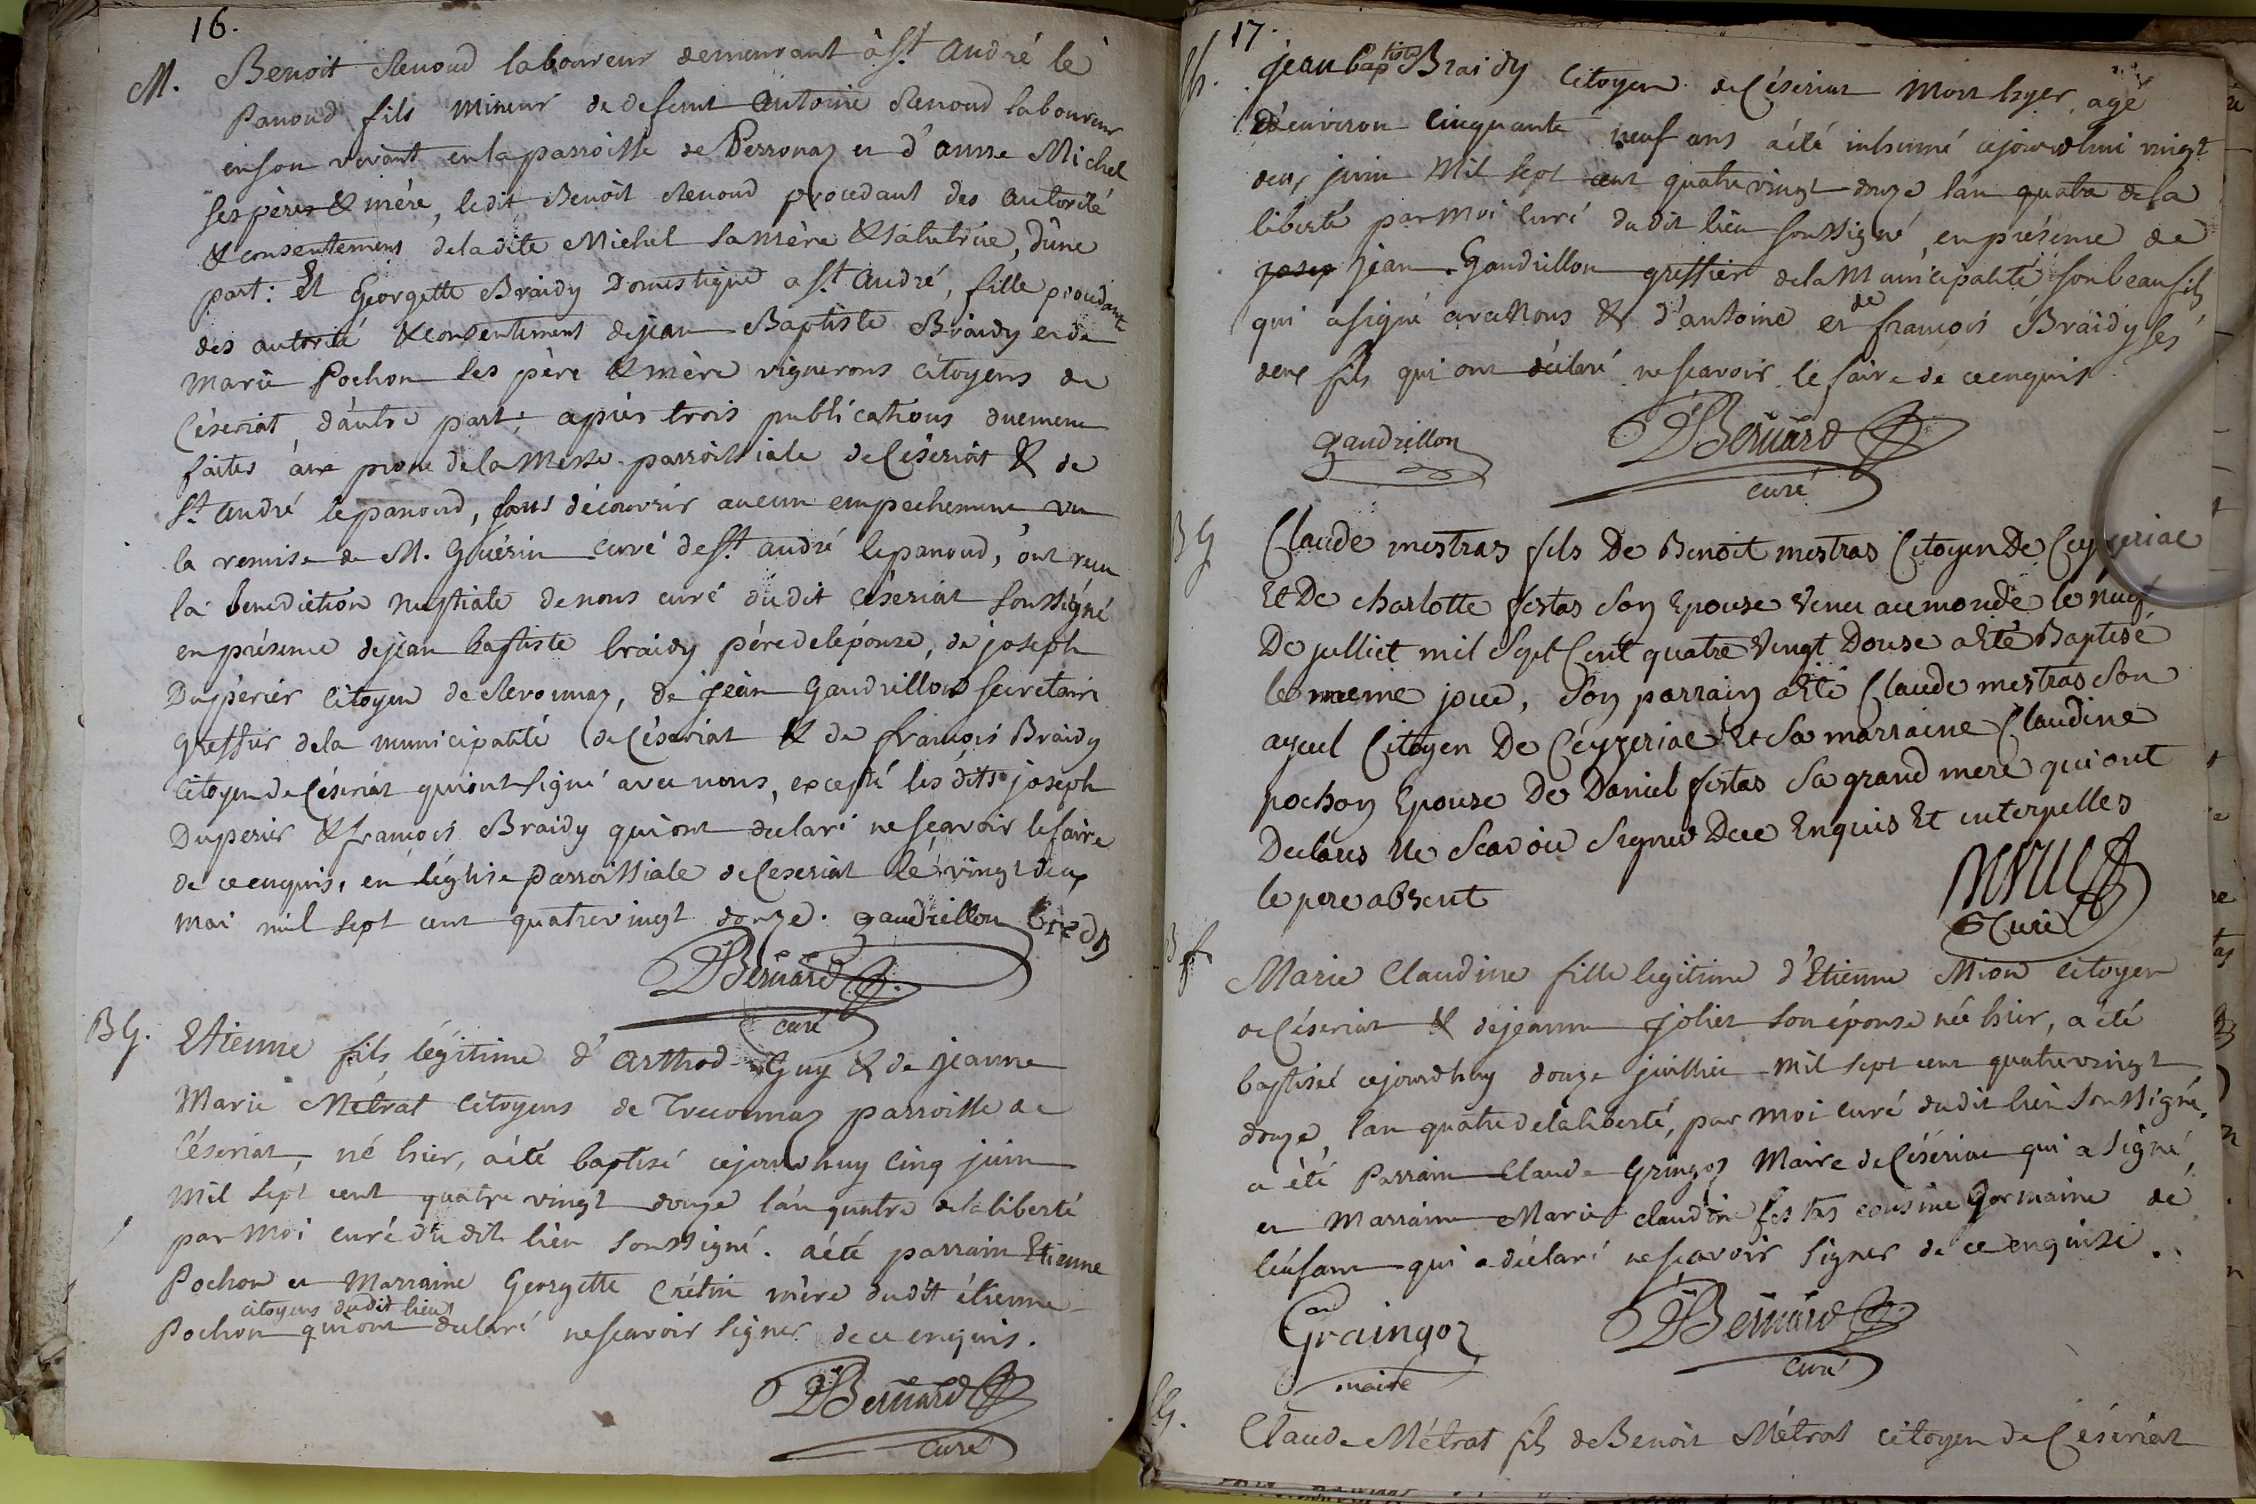 16.
M. Benoit Renoud laboureur demeurant à St André le
Panoud fils mineur de defunt Antoine Renoud laboureur
en son vivant en la parroisse de Perronaz et d'anne Michel
ses père & mère, ledit Benoit Renoud procedant des autorité
& consentement de la dite Michel sa mère & sa tutrice, d'une
part: Et Georgette Braidy Domestique a St André, fille procedante
des autorité & consentement de jean Baptiste Braidy et de
Marie Pochon ses père & mère vignerons citoyens de
Céseriat, d'autre part; après trois publications duement
faites au prone de la Messe parroissiale de Céseriat & de
St André le panoud, sans découvrir aucun empechement vu
la remise de M. Guérin curé de St André le panoud, ont reçu
la benediction nuptiale de nous curé dudit Céseriat soussigné
en présence de jean baptiste braidy père de l'épouse, de joseph
Duperier citoyen de Revonnaz, de Jean Gaudrillon secretaire
greffier de la municipalité de Céseriat & de françois Braidy
citoyen de Céseriat qui ont signé avec nous, excepté les dits joseph
Duperier & françois Braidy qui ont declaré ne scavoir le faire
de ce enquis, en l'église parroissiale de Ceseriat le vingt deux
mai mil sept cent quatre vingt douze. gaudrillon
DBernard
curé
BG. Etienne fils légitime d'Arthod Guy & de jeanne
Marie Métrat citoyens de Treconnaz parroisse de
Céseriat, né hier, a été baptisé cejourdhuy cinq juin
mil sept cent quatre vingt douze l'an quatre de la liberté
par moi curé du dit lieu soussigné. a été parrain Etienne
Pochon et Marraine Georgette Crétin mère dudit étienne
citoyens dudit lieu
Pochon qui ont declaré ne scavoir signer de ce enquis.
DBernard
curé
17.
jean baptiste Braidy citoyen de Céseriat mort hyer, agé
d'environ cinquante neuf ans a été inhumé cejourdhui vingt
deux juin mil sept cent quatre vingt douze l'an quatre de la
liberté par moi curé du dit lieu soussigné, en présence de
josep jean Gaudrillon greffier de la Municipalité son beau fils
qui a signé avec Nous & d'antoine et de françois Braidy ses
deux fils qui ont déclaré ne scavoir le faire de ce enquis
gaudrillon
DBernard
curé
BG Claude mestras fils De Benoit mestras Citoyen De Ceyzeriac
Et De charlotte festas Son Epouse Venu au monde le neuf
De julliet mil Sept Cent quatre Vingt Douse a Eté Baptisé
le meme jour, Son parrain a Eté Claude mestras Son
ayeul Citoyen De Céyzeriac Et Sa marraine Claudine
pochon Epouse De Daniel festas Sa grand mere qui ont
Declarés Ne Scavoir Signer De ce Enquis Et interpelles
le pere absent
Curé
Bf. Marie Claudine fille legitime d'Etienne Mion citoyen
de Céseriat & de jeanne Joliet son épouse né hier, a été
baptisé cejourdhuy douze juillet mil sept cent quatre vingt
douze l'an quatre de la liberté, par moi curé du dit lieu soussigné.
a été Parrain Claude Gringoz Maire de Césériac qui a signé,
et Marraine Marie Claudine festas cousine Germaine de
l'enfant qui a déclaré ne scavoir signer de ce enquise.
Graingoz
maire
DBernard
curé
BG. Claude Métrat fils de Benoit Métrat citoyen de Céseriat